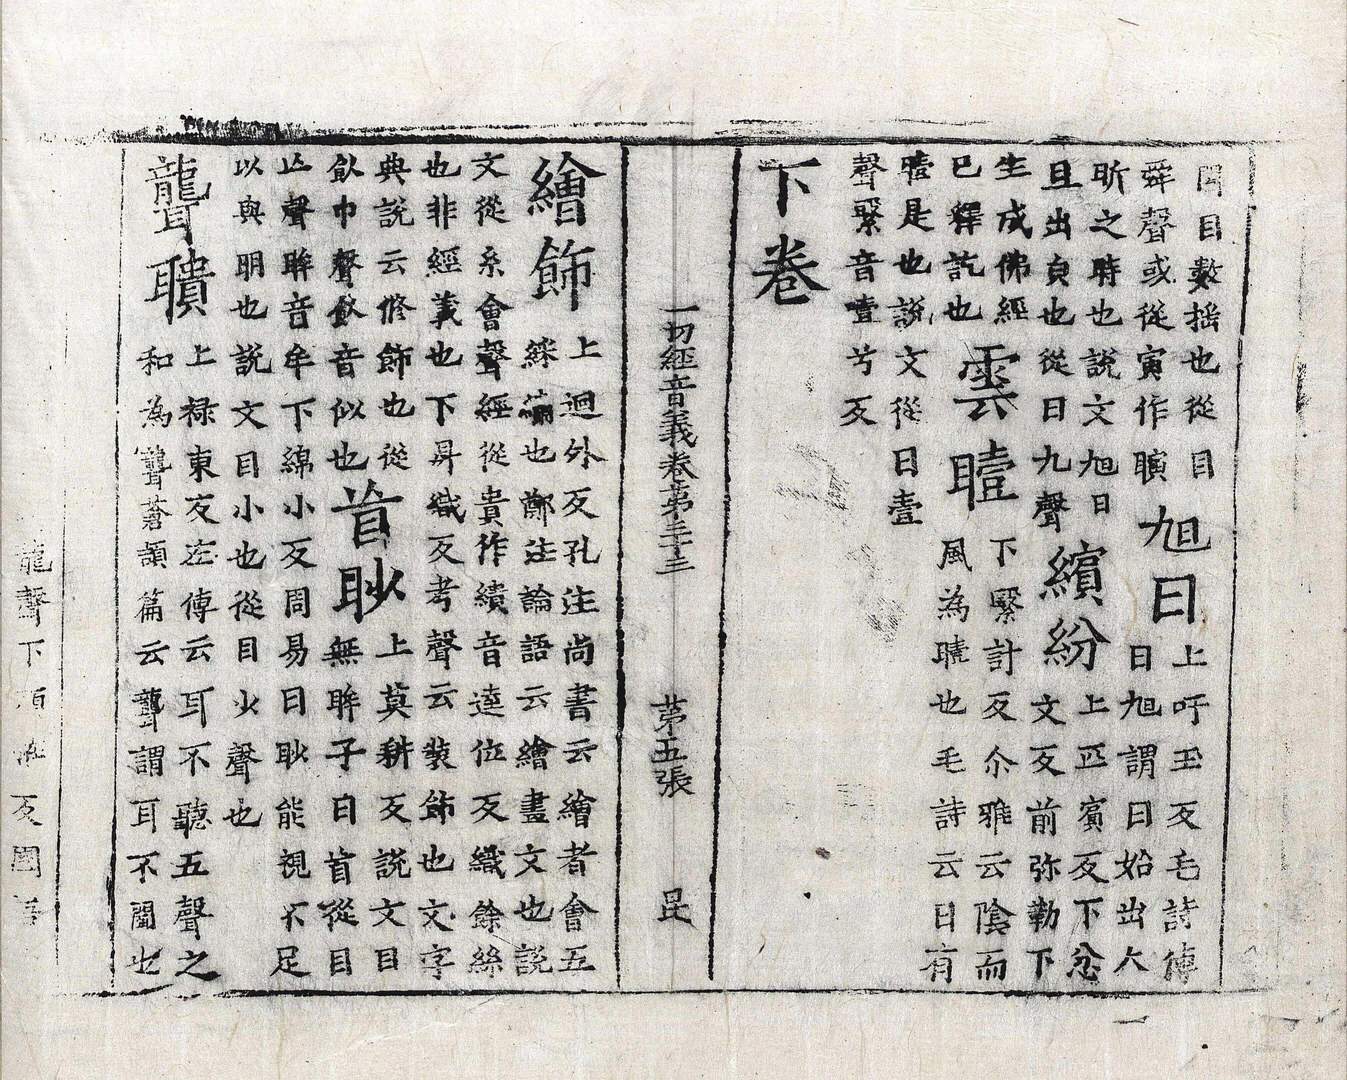 目數搖也從目
舜聲或從寅作瞚
旭日
上吁玉反毛詩傳
日旭謂日始出大
昕之時也說文旭日
旦出皃也從日九聲
繽紛
上匹賓反下忿
文反前弥勒下
生成佛經
已釋訖也
雲曀
下緊計反尒雅云陰而
風為曀也毛詩云日有
曀是也說文從日壹
聲緊音壹兮反
下卷
一切經音義卷第三十三
第五張
昆
繪飾
上迴外反孔注尚書云繪者會五
綵繡也鄭注論語云繪畫文也說
文從糸會聲經從貴作繢音達位反織餘絲
也非經義也下昇織反考聲云裝飾也文字
典說云修飾也從
飤巾聲飤音似也
盲眇
上莫耕反說文目
無眸子曰盲從目
亡聲眸音牟下綿小反周易曰眇能視不足
以與明也說文目小也從目少聲也
聾聵
上祿東反左傳云耳不聽五聲之
和為聾蒼頡篇云聾謂耳不聞也
龍聲下頑反國語